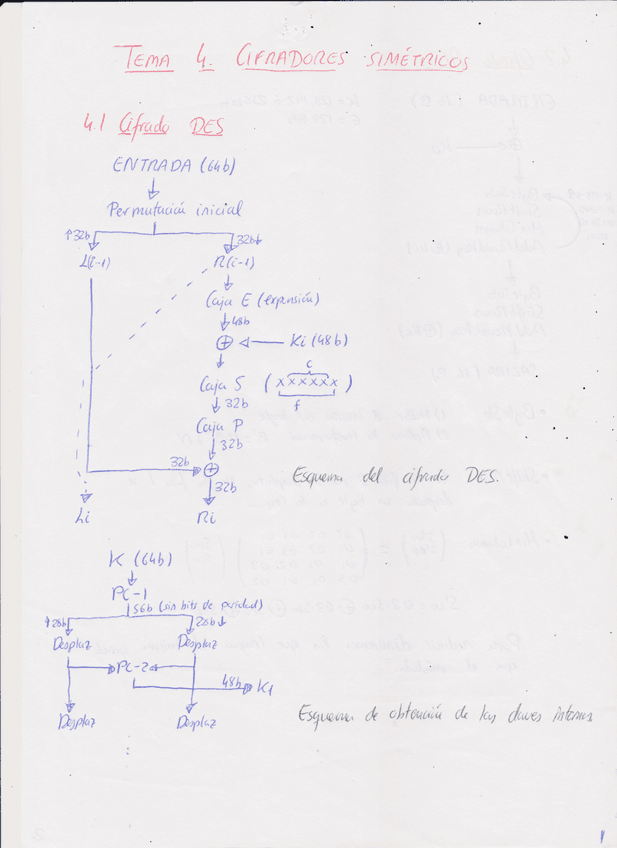 TEMA 4. CIFRADORES SIMÉTRICOS
4.1 Cifrado DES
ENTRADA (64b)
Permutación inicial
↑32b 32b↓
L(i-1) R(i-1)
Caja E (expansión)
48b
⊕ Ki (48b)
c
Caja S (xxxxxx)
32b f
Caja P
32b
32b ⊕
32b
Esquema del cifrador DES.
Li Ri
K (64b)
PC-1
56b (sin bits de paridad)
↑28b 28b↓
Desplaz Desplaz
PC-2
48b K1
Desplaz Desplaz
Esquema de obtención de las claves internas
1